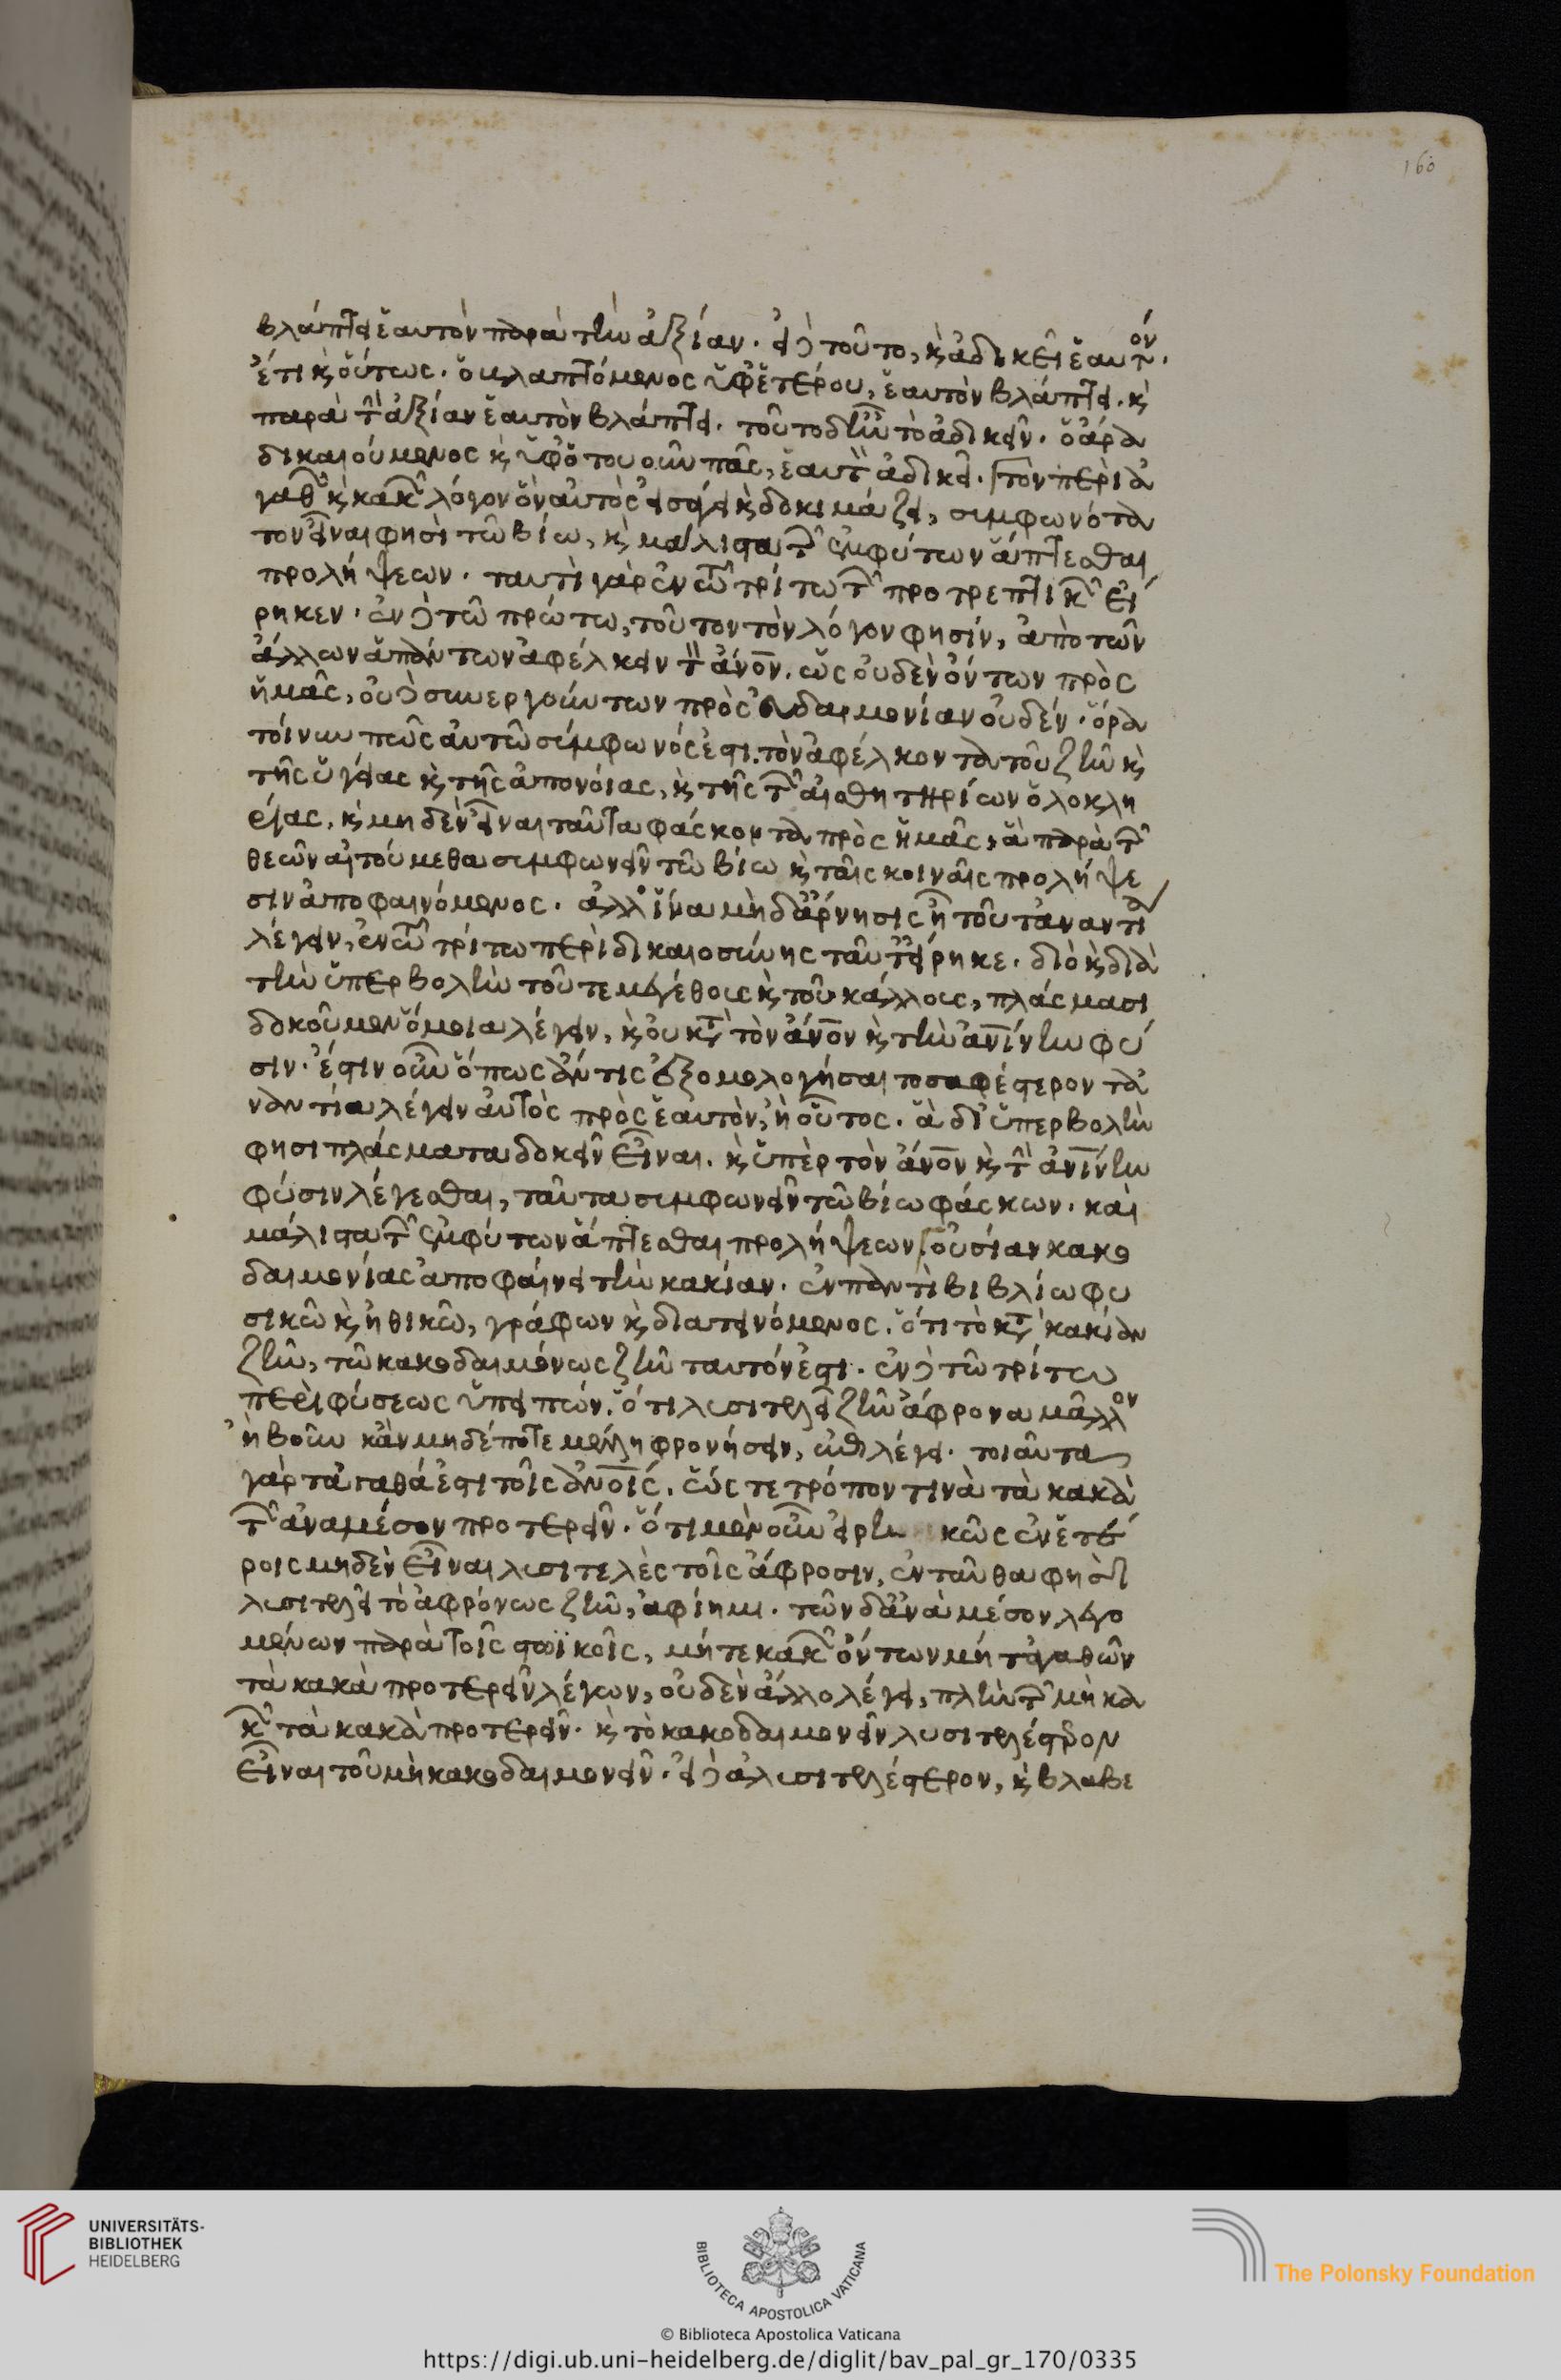 βλάπτει ἑαυτὸν παρὰ τὴν ἀξίαν. εἰ δὲ τοῦτο, ϗ ἀδικεῖ ἑαυτόν.
ἔτι ϗ οὕτως. ὁ βλαπτόμενος ὑφ' ἑτέρου, ἑαυτὸν βλάπτει. ϗ
παρὰ τὴν ἀξίαν ἑαυτὸν βλάπτει. τοῦτο δ' ἦν τὸ ἀδικεῖν. ὁ ἄρα
δικαιούμενος ϗ ὑφ' ὁτουοῦν πᾶς, ἑαυτὸν ἀδικεῖ. τὸν περὶ ἀ
γαθῶν ϗ κακῶν λόγον ὃν αὐτὸς εἰσάγει ϗ δοκιμάζει, συμφωνότα
τον εἶναι φησὶ τῶ βίω, ϗ μάλιστα τῶν ἐμφύτων ἅπτεσθαι
προλήψεων. ταυτὶ γὰρ ἐν τῶ τρίτω τῶν προτρεπτικῶν εἴ
ρηκεν. ἐν δὲ τῶ πρώτω, τοῦτον τὸν λόγον φησίν, ἀπὸ τῶν
ἄλλων ἁπάντων ἀφέλκειν τὸν ἄνον. ὡς οὐδὲν ὄντων πρὸς
ἡμᾶς, οὐδὲ συνεργούντων πρὸς εὐδαιμονίαν οὐδέν. ὅρα
τοίνυν πῶς αὐτῶ σύμφωνός ἐστι. τὸν ἀφέλκοντα τοῦ ζῆν ϗ
τῆς ὑγείας ϗ τῆς ἀπονοίας, ϗ τῆς τῶν αἰσθητηρίων ὁλοκλη
ρίας, ϗ μηδὲν εἶναι ταῦτα φάσκοντα πρὸς ἡμᾶς, ἃ παρὰ τῶν
θεῶν αἰτούμεθα συμφωνεῖν τῶ βίω ϗ ταῖς κοιναῖς προλήψε
σιν ἀποφαινόμενος. ἀλλ' ἵνα μὴ δ' ἄρνησις ῇ τοῦ τἀναντία
λέγειν, ἐν τῶ τρίτω περὶ δικαιοσύνης ταῦτ' εἴρηκε. διὸ ϗ διὰ
τὴν ὑπερβολὴν τοῦ τε μεγέθους ϗ τοῦ κάλλους, πλάσμασι
δοκοῦμεν ὅμοια λέγειν, ϗ οὐ κατὰ τὸν ἄνον ϗ τὴν ἀνίνην φύ
σιν. ἔστιν οὖν ὅπως ἄν τις ἐξομολογήσαιτο σαφέστερον τἀ
ναντία λέγειν αὐτὸς πρὸς ἑαυτὸν, ἢ οὗτος. ἃ δι' ὑπερβολὴν
φησι πλάσματα δοκεῖν εἶναι. ϗ ὑπὲρ τὸν ἄνον ϗ τὴν ἀνίνην
φύσιν λέγεσθαι, ταῦτα συμφωνεῖν τῶ βίω φάσκων. καὶ
μάλιστα τῶν ἐμφύτων ἅπτεσθαι προλήψεων. οὐσίαν κακο
δαιμονίας ἀποφαίνει τὴν κακίαν. ἐν παντὶ βιβλίω φυ
σικῶ ϗ ἠθικῶ, γράφων ϗ διατεινόμενος. ὅτι τὸ κατὰ κακίαν
ζῆν, τῶ κακοδαιμόνως ζῆν ταυτόν ἐστι. ἐν δὲ τῶ τρίτω
περὶ φύσεως ὑπειπών. ὅτι λυσιτελεῖ ζῆν ἄφρονα μᾶλλον
ἢ βοῦν κἂν μηδέποτε μέλλῃ φρονήσειν, ἐπιλέγει. τοιαῦτα
γὰρ τἀγαθά ἐστι τοῖς ἀνοῖς. ὥστε τρόπον τινὰ τὰ κακὰ
τῶν ἀναμέσον προτερεῖν. ὅτι μὲν οὖν εἰρη κὼς ἐν ἑτέ
ροις μηδὲν εἶναι λυσιτελὲς τοῖς ἄφροσιν, ἐνταῦθα φησὶ
λυσιτελεῖ τὸ ἀφρόνως ζῆν, ἀφίημι. τῶν δ' ἀνὰ μέσον λεγο
μένων παρὰ τοῖς στωϊκοῖς, μήτε κακῶν ὄντων μήτ' ἀγαθῶν
τὰ κακὰ προτερεῖν λέγων, οὐδὲν ἄλλο λέγει, πλὴν τῶν μὴ κα
κῶν τὰ κακὰ προτερεῖν. ϗ τὸ κακοδαιμονεῖν λυσιτελέστερον
εἶναι τοῦ μὴ κακοδαιμονεῖν. εἰ δὲ ἀλυσιτελέστερον, ϗ βλαβε
160
UNIVERSITÄTS-
BIBLIOTHEK
HEIDELBERG
BIBLIOTECA APOSTOLICA VATICANA
The Polonsky Foundation
© Biblioteca Apostolica Vaticana
https://digi.ub.uni-heidelberg.de/diglit/bav_pal_gr_170/0335